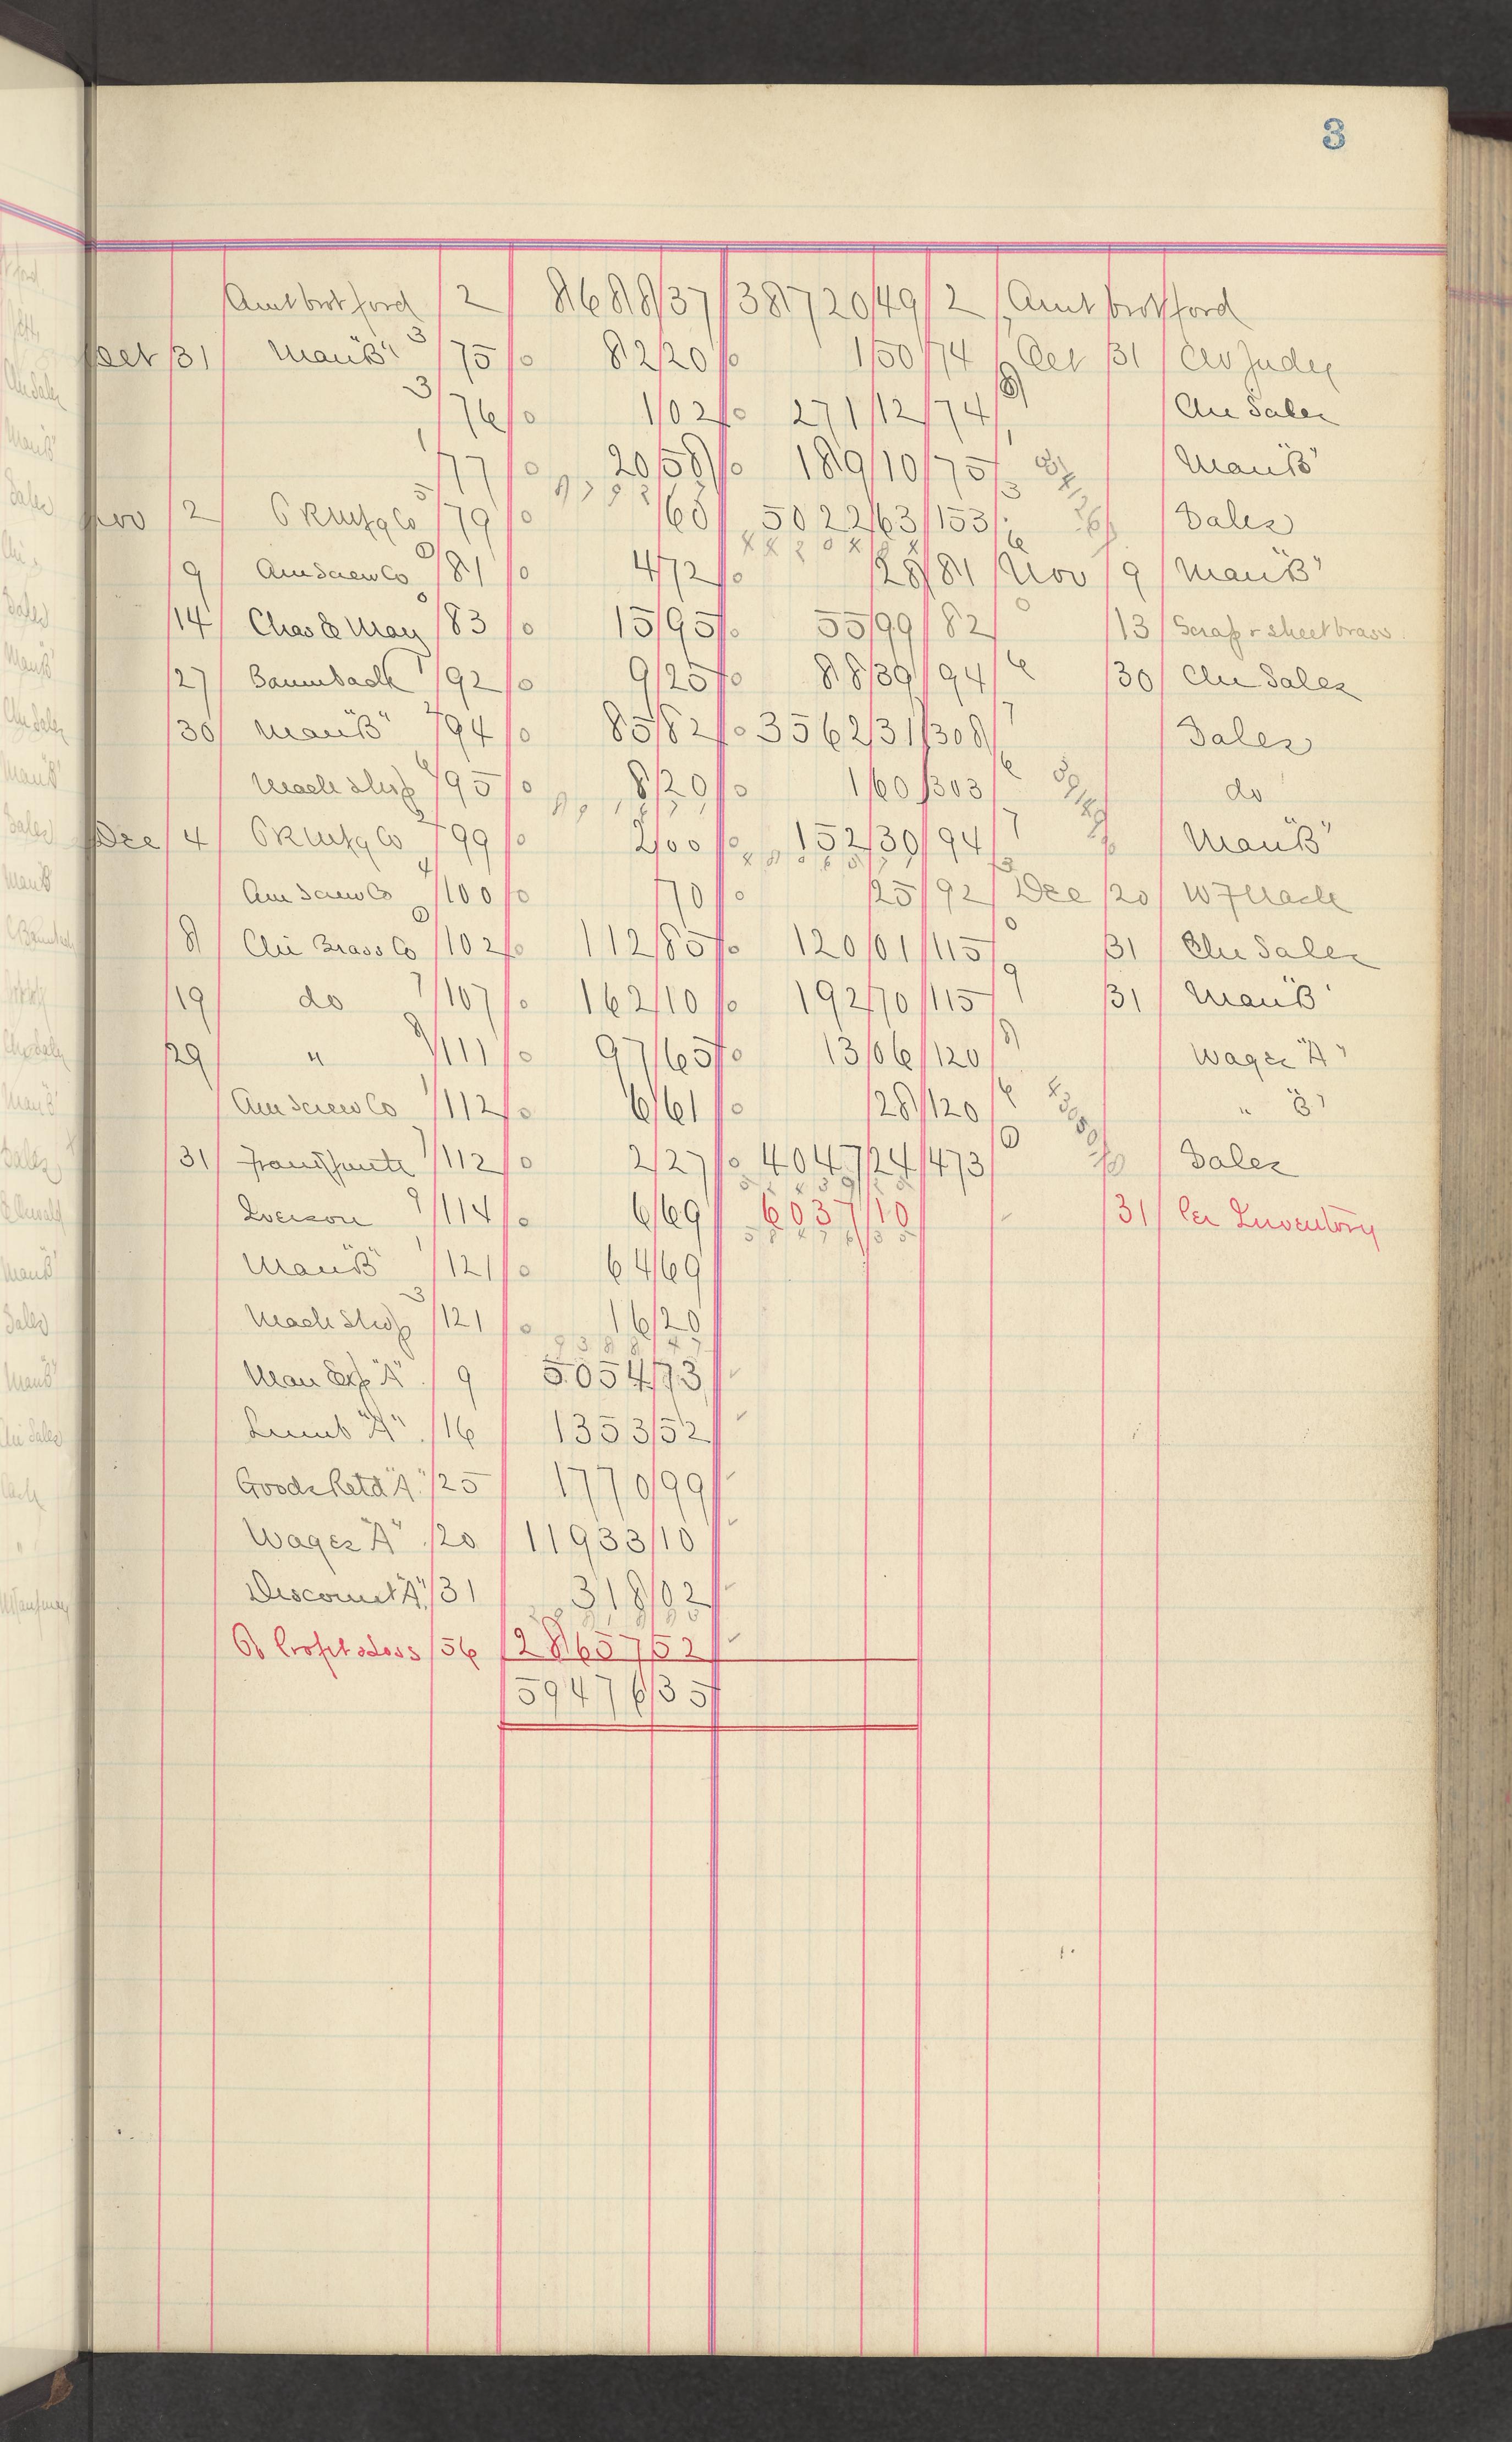 3
Amt brot ford 2 8688 37 38720 49 2 Amt brot ford
Oct 31 Man "B" 75 82 20 1 50 74 Oct 31
76 1 02 271 12 74 Chi Sales
77 20 58 189 10 75 Man "B"
Nov 2 Mfg Co 79 65 5022 63 153 Sales
9 Am Screw Co 81 4 72 28 81 Nov 9 Man "B"
14 Chas E May 83 15 95 55 99 82 13 Scrap & sheet brass
27 Baumbach 92 9 25 88 39 94 30 Chi Sales
30 Man "B" 94 85 82 3562 31 308 Sales
Mach Shop 95 8 20 1 60 303 do
Dec 4 Mfg Co 99 2 00 152 30 94 Man "B"
Am Screw Co 100 70 25 92 Dec 20
8 Chi Brass Co 102 112 85 120 01 115 31 Chi Sales
19 do 107 162 10 192 70 115 31 Man "B"
29 " 111 97 65 13 06 120 Wages "A"
Am Screw Co 112 6 61 28 120 " "B"
31 112 2 27 4047 24 473 Sales
Iverson 114 6 69 6037 10 31 Per Inventory
Man "B" 121 64 69 58476 35
Mach Shop 121 16 20
9388 47
Man Exp "A" 9 5054 73
Lumb "A" 16 1353 52
Goods Retd "A" 25 1770 99
Wages "A" 20 11933 10
Discount "A" 31 318 02
Profit & Loss 56 28657 52
59476 35